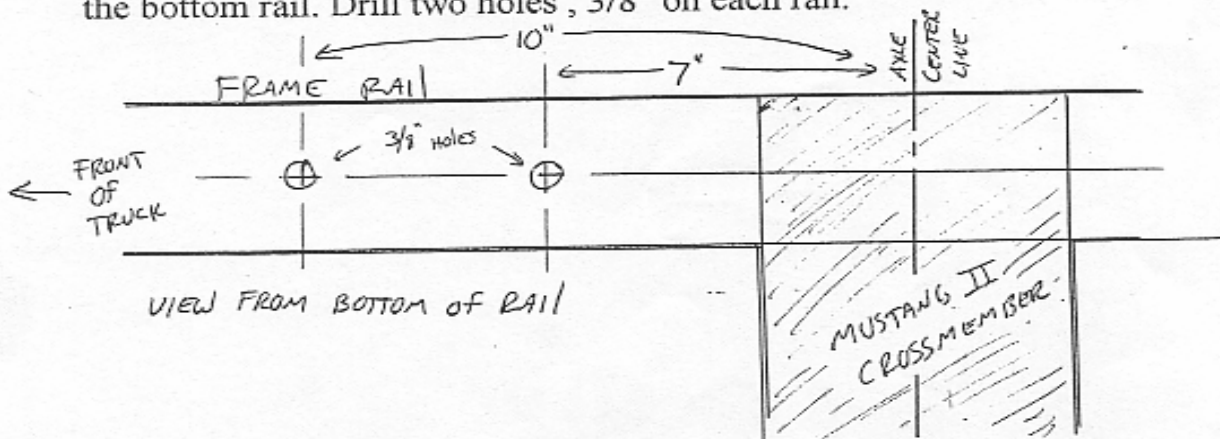 the bottom rail. Drill two holes , 3/8" on each rail.
10"
AXLE
CENTER
LINE
7"
FRAME RAIL
3/8" HOLES
FRONT
OF
TRUCK
VIEW FROM BOTTOM OF RAIL
MUSTANG II
CROSSMEMBER